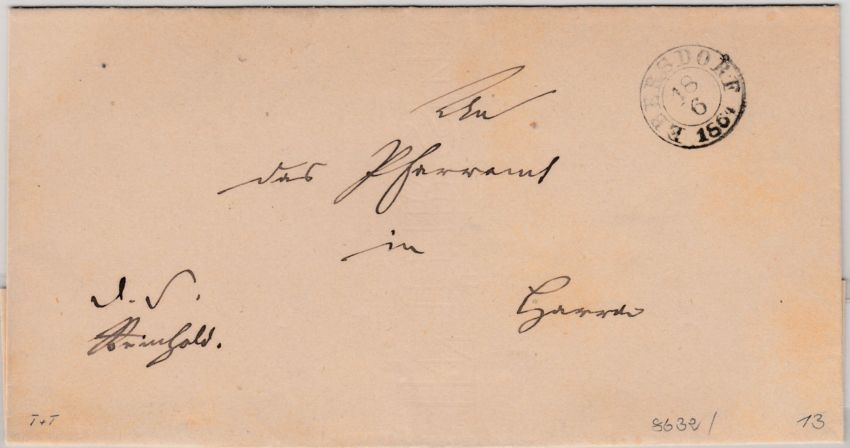 EBERSDORF
18
6
1864
An
das Pfarramt
in
Harra
d. S.
Reinhold.
T+T
8632/
13